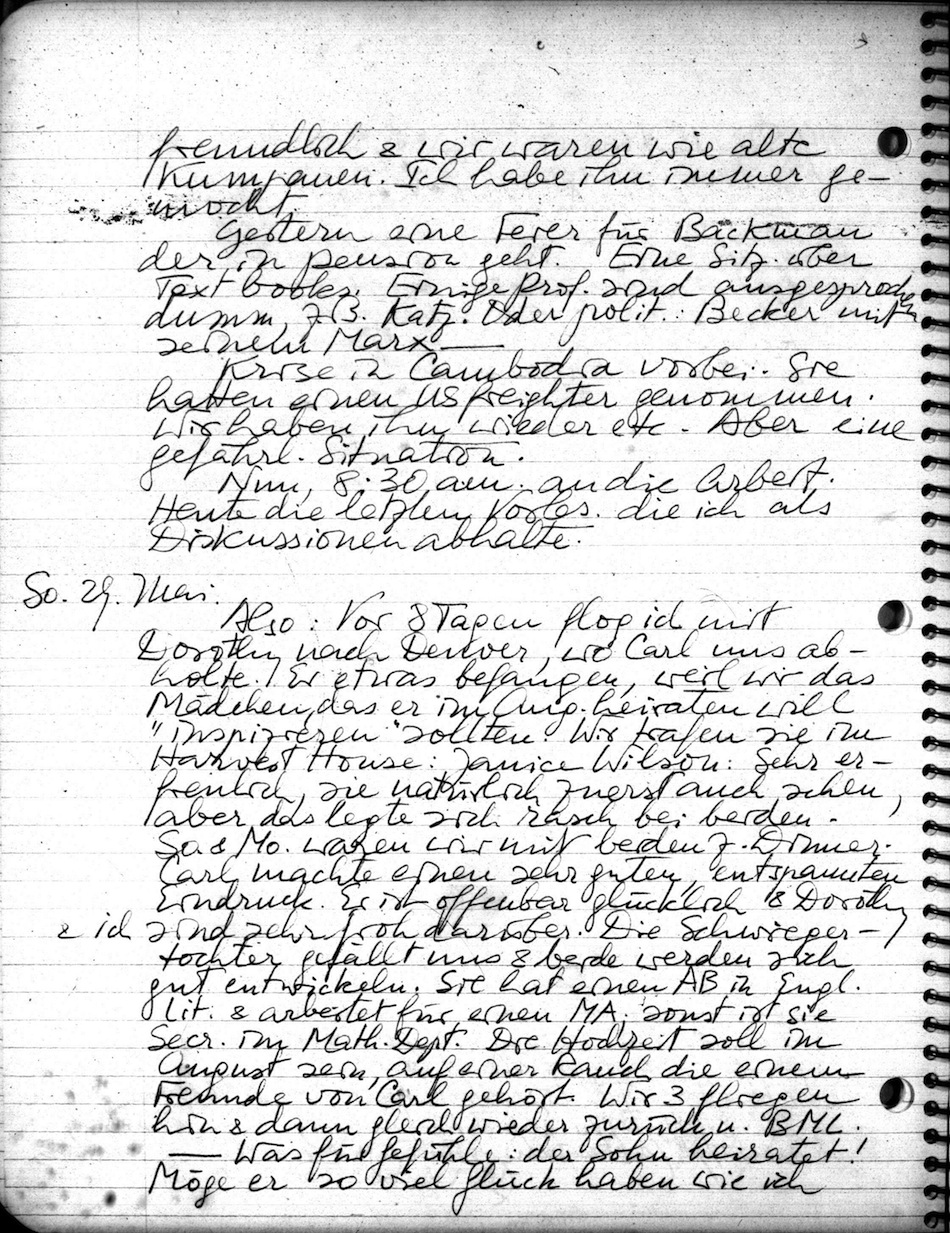 freundlich & wir waren wie alte
Kumpanen. Ich habe ihn immer ge-
mocht.
Gestern eine Feier für Backman
der in pension geht. Eine Sitz. über
Text books. Einige Prof. sind ausgesprochen
dumm, z.B. Katz. Oder polit.: Becker mit
seinem Marx —
Krise in Cambodia vorbei. Sie
hatten einen US freighter genommen.
Wir haben ihn wieder etc. Aber eine
gefährl. Situation.
Nun, 8:30 am. an die Arbeit.
Heute die letzten Vorles. die ich als
Diskussionen abhalte.
So. 29. Mai.
Also: Vor 8 Tagen flog ich mit
Dorothy nach Denver, wo Carl uns ab-
holte. Er etwas befangen, weil wir das
Mädchen, das er im Aug. heiraten will
"inspizieren" sollten. Wir trafen sie im
Harvest House: Janice Wilson: Sehr er-
freulich, sie natürlich zuerst auch scheu,
aber das legte sich rasch bei beiden.
So & Mo. waren wir mit beiden z. Dinner.
Carl machte einen sehr guten, entspannten
Eindruck. Er ist offenbar glücklich & Dorothy
& ich sind sehr froh darüber. Die Schwieger-
tochter gefällt uns & beide werden sich
gut entwickeln. Sie hat einen AB in Engl.
Lit. & arbeitet für einen MA. Sonst ist sie
Secr. im Math. Dept. Die Hochzeit soll im
August sein, auf einer Ranch, die einem
Freunde von Carl gehört. Wir 3 fliegen
hin & dann gleich wieder zurück n. BML.
— Was für Gefühle: der Sohn heiratet!
Möge er so viel Glück haben wie ich